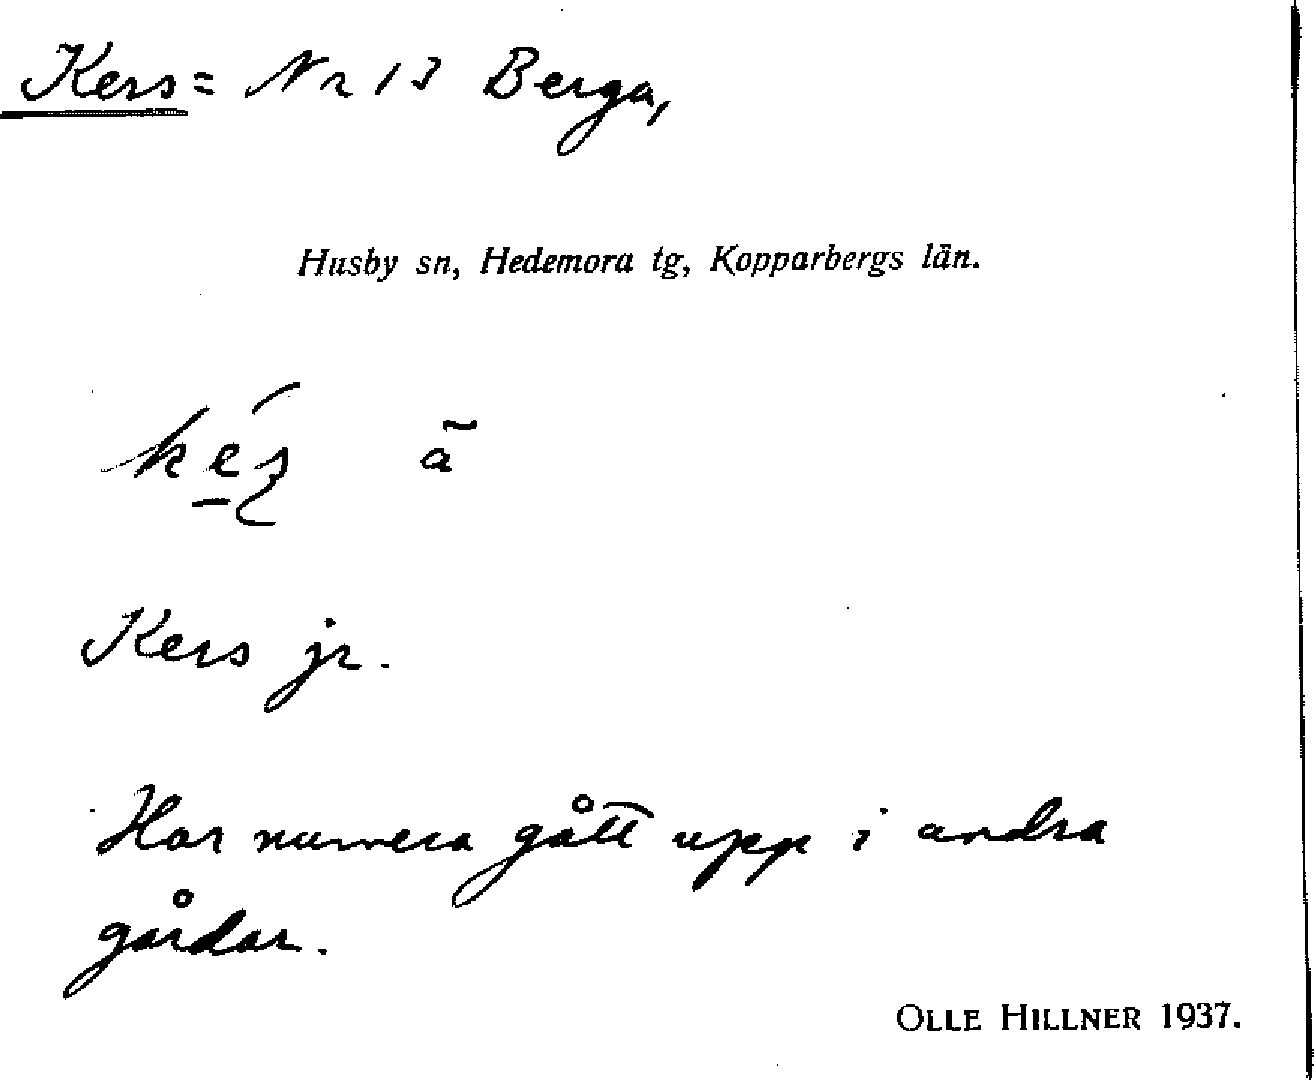 Kers = Nr 13 Berga,
Husby sn, Hedemora tg, Kopparbergs län.
ã
Kers jr.
Har numera gått upp i andra
gårdar.
OLLE HILLNER 1937.